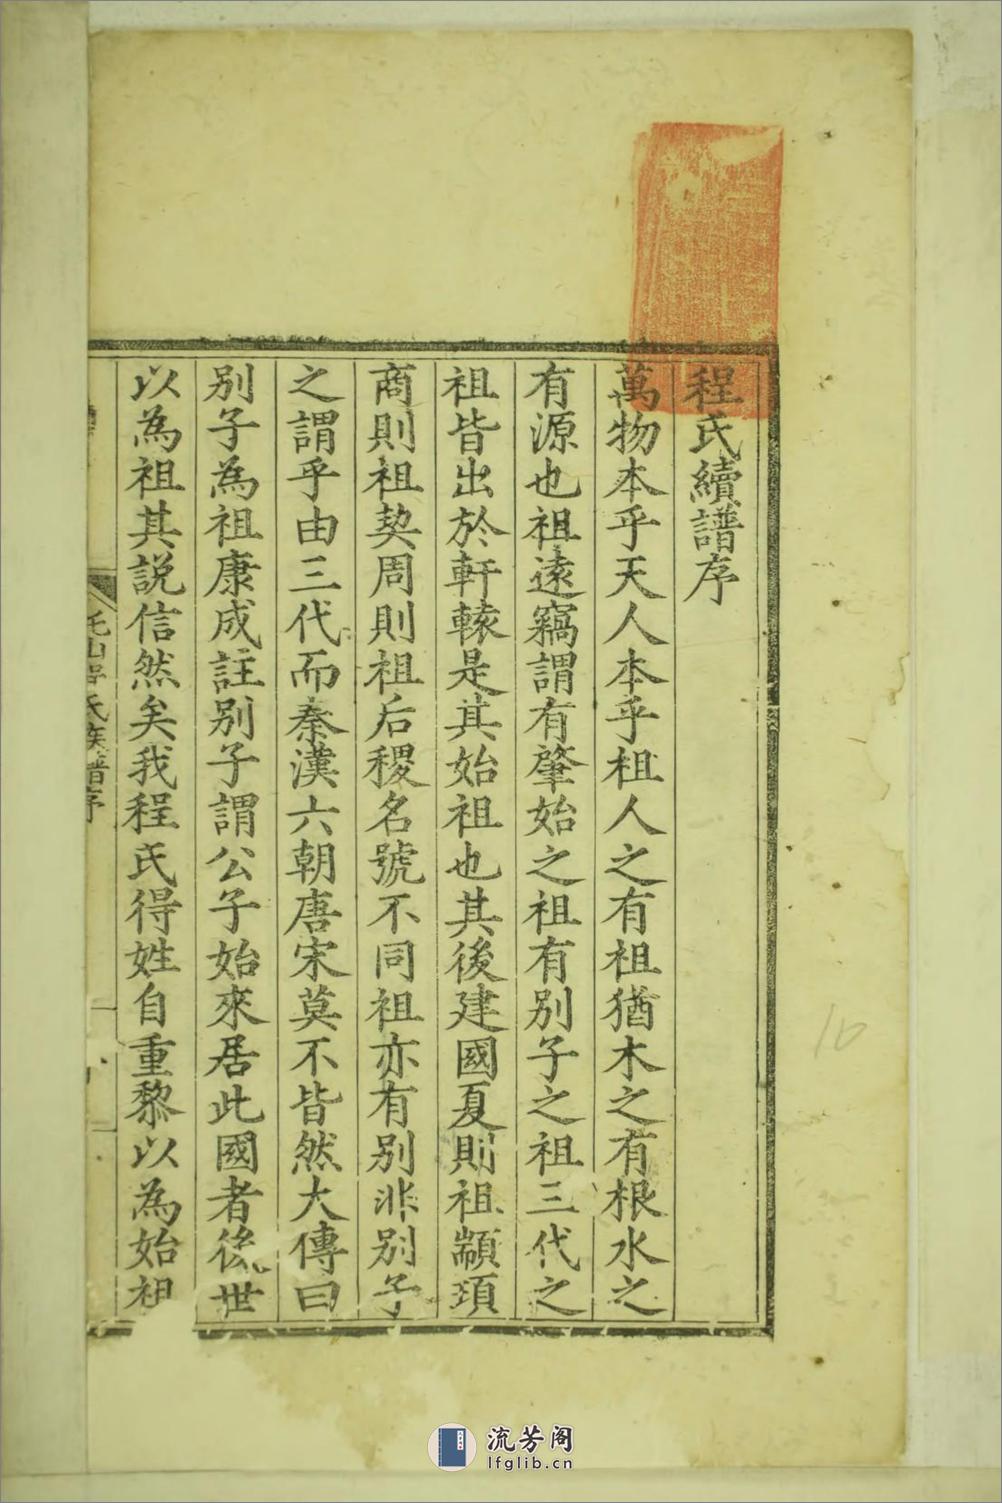 程氏續譜序
萬物本乎天人本乎祖人之有祖猶木之有根水之
有源也祖遠竊謂有肇始之祖有别子之祖三代之
祖皆出於軒轅是其始祖也其後建國夏則祖顓頊
商則祖契周則祖后稷名號不同祖亦有别非别子
之謂乎由三代而秦漢六朝唐宋莫不皆然大傳曰
别子為祖康成註别子謂公子始來居此國者後世
以為祖其説信然矣我程氏得姓自重黎以為始祖
山 氏族譜序
10
流芳阁
lfglib.cn